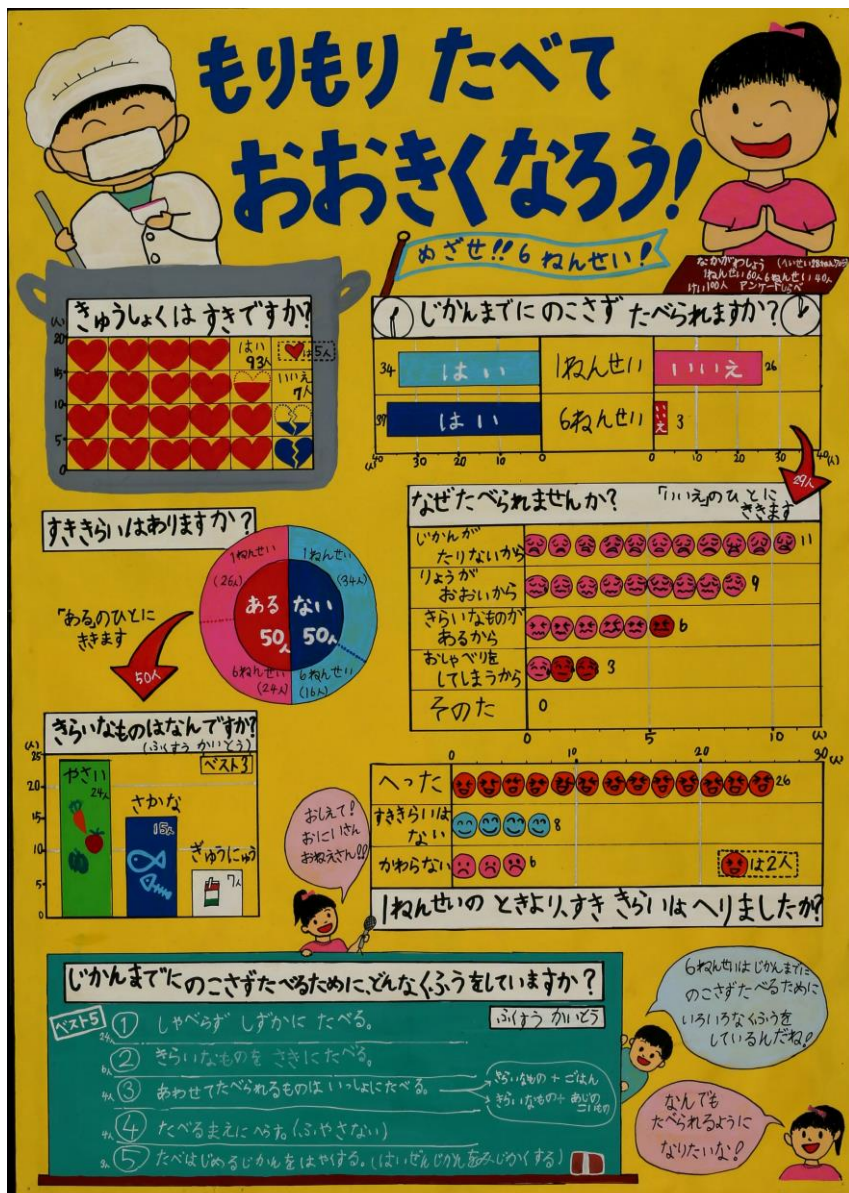 もりもり たべて
おおきくなろう!
めざせ!! 6ねんせい!
なかがわしょう
1ねんせい60人6ねんせい40人
けい100人 アンケートしらべ
きゅうしょくは すきですか?
(人)
20
15
10
5
0
はい
93人
いいえ
7人
は5人
じかんまでに のこさず たべられますか?
34 はい 1ねんせい いいえ 26
39 はい 6ねんせい いいえ 3
40 30 20 10 0 0 10 20 30 40
(人) (人)
29人
なぜたべられませんか? 「いいえ」のひとに
ききます
じかんが
たりないから 11
りょうが
おおいから 9
きらいなものが
あるから 6
おしゃべりを
してしまうから 3
そのた 0
0 5 10 (人)
すききらいはありますか?
1ねんせい
(26人)
1ねんせい
(34人)
ある
50人
ない
50人
6ねんせい
(24人)
6ねんせい
(16人)
「ある」のひとに
ききます
50人
きらいなものはなんですか?
(ふくすう かいとう)
ベスト3
(人)
25
20
15
10
5
0
やさい
24人
さかな
15人
ぎゅうにゅう
7人
0 10 20 30 (人)
へった 26
すききらいは
ない 8
かわらない 6
は2人
1ねんせいの ときより、すき きらいは へりましたか?
おしえて!
おにいさん
おねえさん!!
じかんまでに のこさずたべるために、どんなくふうをしていますか?
ベスト5
ふくすう かいとう
① しゃべらず しずかに たべる。
② きらいなものを さきにたべる。
③ あわせてたべられるものは いっしょにたべる。
きらいなもの + ごはん
きらいなもの + あじの
こいもの
④ たべるまえに へらす。(ふやさない)
⑤ たべはじめるじかんをはやくする。(はいぜんじかんをみじかくする)
6ねんせいはじかんまでに
のこさずたべるために
いろいろなくふうを
しているんだね!
なんでも
たべられるように
なりたいな!